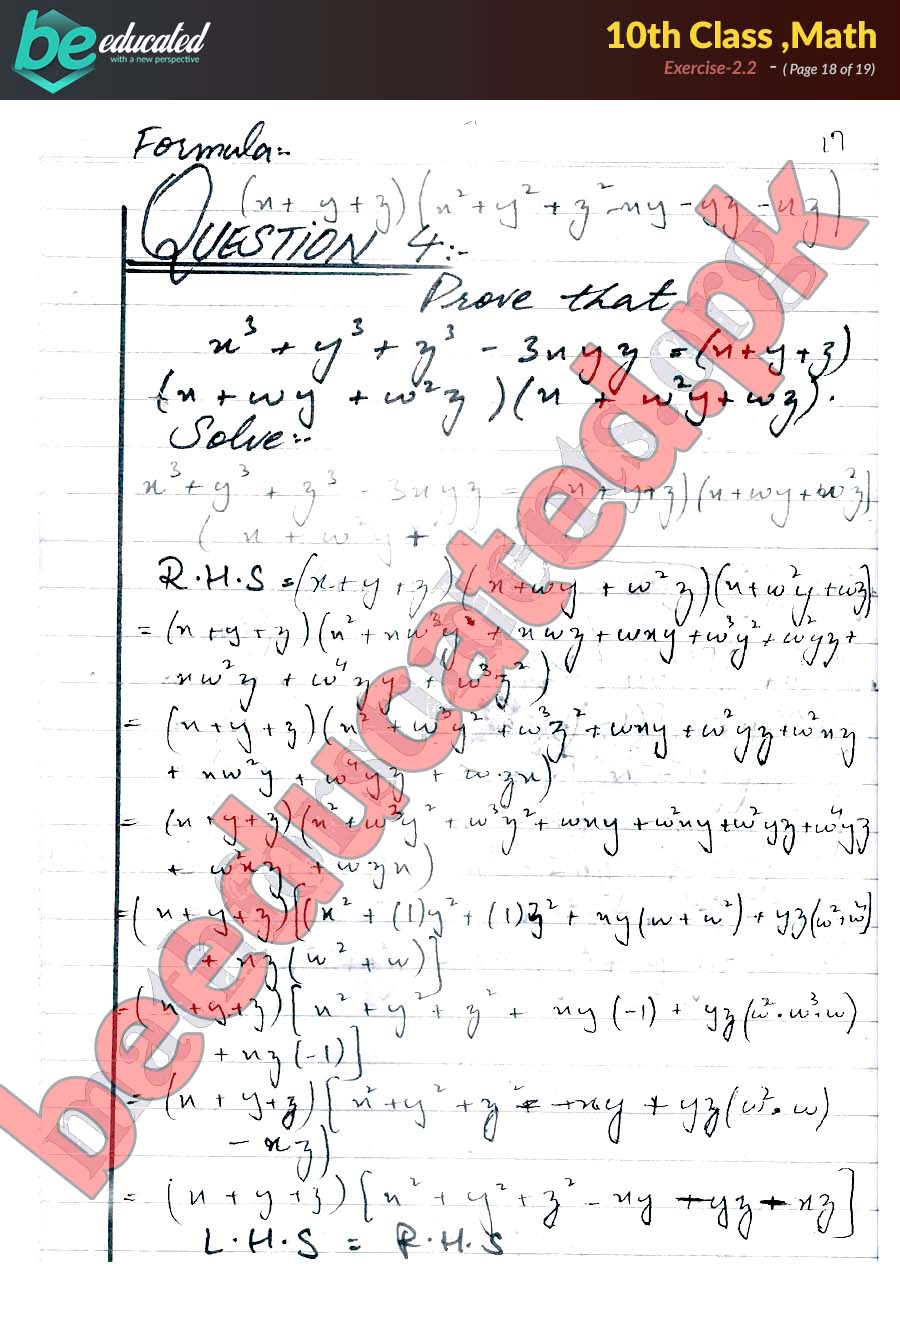 be educated
with a new perspective
10th Class ,Math
Exercise-2.2 - ( Page 18 of 19)
Formula:-
17
(x + y + z) (x² + y² + z² - xy - yz - xz)
QUESTION 4:-
Prove that
x³ + y³ + z³ - 3xyz = (x+y+z)
(x + ωy + ω²z) (x + ω²y + ωz).
Solve:-
x³ + y³ + z³ - 3xyz = (x+y+z)(x+ωy+ω²z)
(x + ω²y +
R.H.S = (x+y+z) (x+ωy + ω²z)(x+ω²y+ωz)
= (x+y+z)(x² + xω²y + xωz + ωxy + ω³y² + ω²yz +
xω²z + ω⁴zy + ω³z²)
= (x+y+z)(x² + ω³y² + ω³z² + ωxy + ω²yz + ω²xz
+ xω²y + ω⁴yz + ω.zx)
= (x+y+z)(x² + ω³y² + ω³z² + ωxy + ω²xy + ω²yz + ω⁴yz
+ ω²xz + ωzx)
= (x+y+z)[(x² + (1)y² + (1)z² + xy(ω+ω²) + yz(ω²+ω⁴)
+ xz(ω²+ω)]
= (x+y+z)[x² + y² + z² + xy(-1) + yz(ω²+ω³.ω)
+ xz(-1)]
= (x+y+z)[x² + y² + z² - xy + yz(ω²+ω)
- xz)
= (x+y+z)[x² + y² + z² - xy - yz - xz]
L.H.S = R.H.S
beeducated.pk